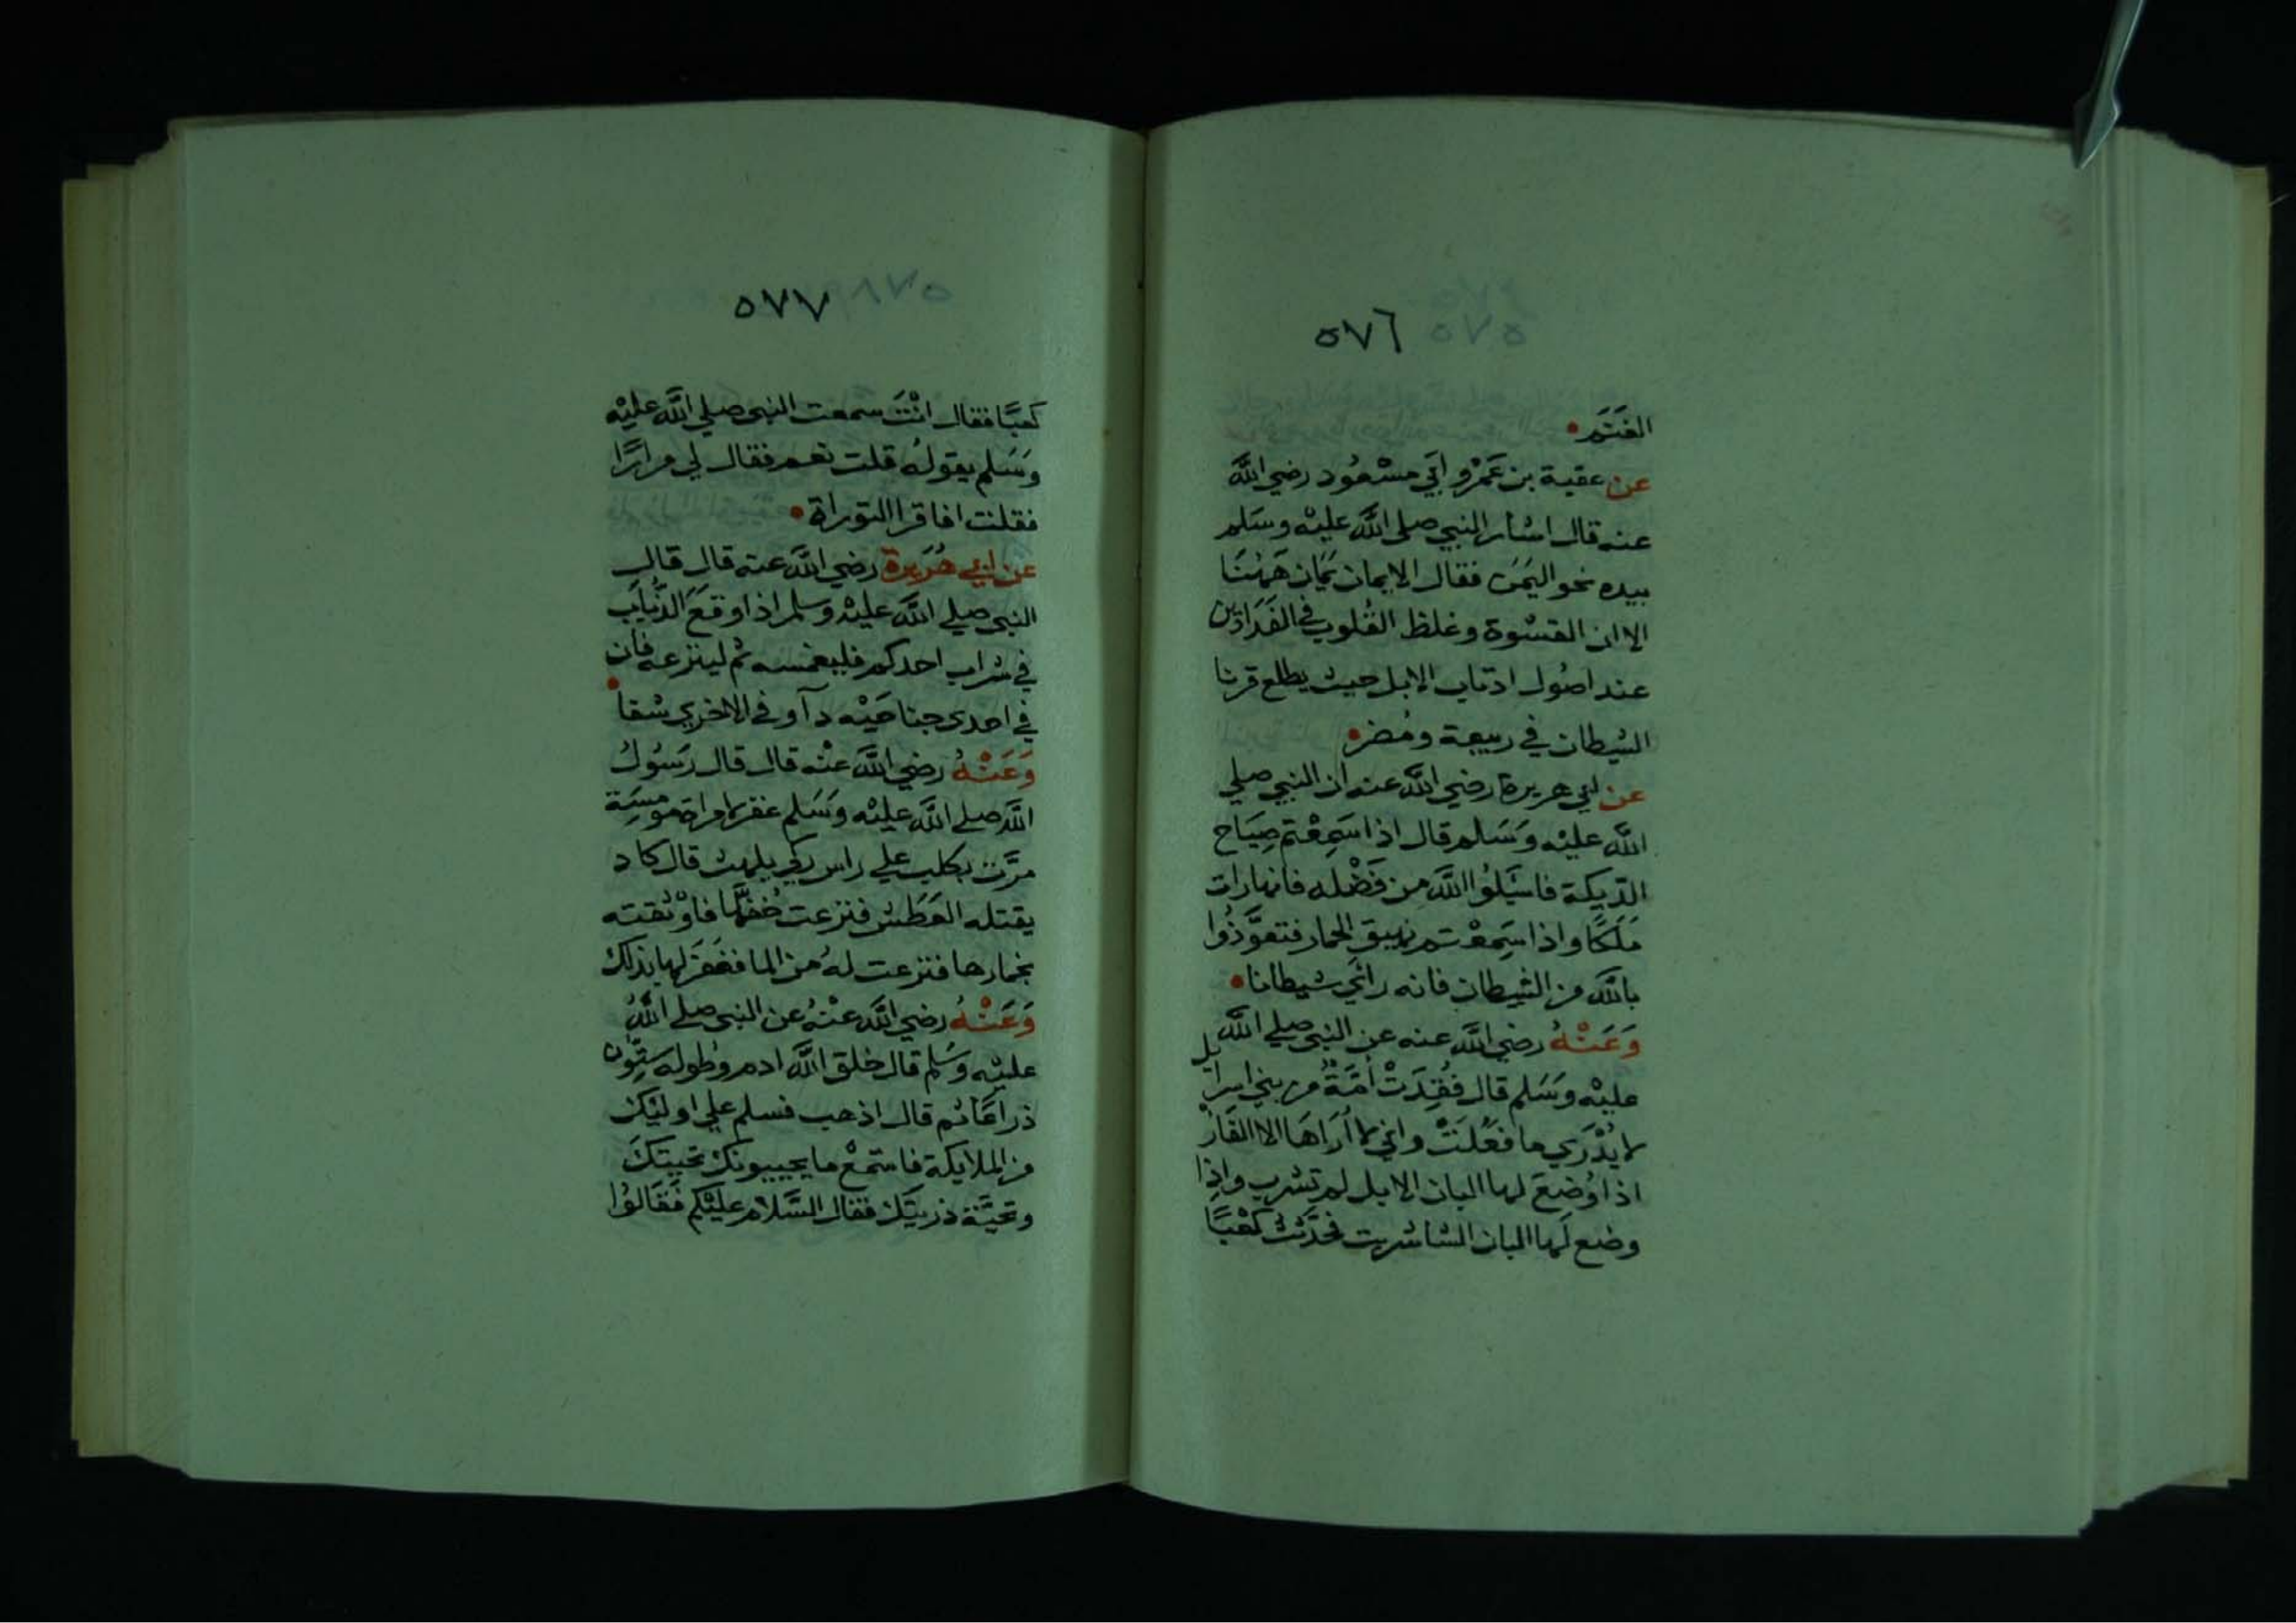 ٥٧٦
الغَنَمِ
عن عقبة بن عَمْرو ابي مسْعُود رضي الله
عنه قال اشار النبي صلى الله عليْه وسَلم
بيده نحو اليَمن فقال الايمان يَمان هَهُنَا
الا ان القسْوة وغلظ القُلوب في الفَدَادين
عند اصُول اذناب الابل حيث يطلع قرنا
الشيطان في ربيعة ومُضر
عن ابي هريرة رضي الله عنه ان النبي صلي
الله عليْه وَسَلم قال اذا سَمِعْتم صِيَاح
الدّيكة فاسَيلُوا الله من فَضْله فانها رات
مَلَكًا واذا سَمِعْتم نهيق الحمار فتعَوَّذُوا
بالله من الشيطان فانه رأي شيطانا
وَعَنْهُ رضي الله عنه عن النبي صلي الله
عليْه وسَلم قال فُقِدَتْ أُمَّةٌ من بني اسرايل
لا يُدْرَي ما فعُلَتْ واني لا أُرَاهَا الا الفَارْ
اذا وُضِعَ لها البان الابل لم تشرب واِذا
وضع لَها البان الشا شربت فحدَّثتُ كَعْبًا
٥٧٧
كَعْبًا فقال انْتَ سمعت النبي صلي الله عليْه
وسَلم يقولهُ قلت نعم فقال لي مرارًا
فقلت افاقرا التوراة
عن ابي هُرَيرة رضي الله عنه قال قال
النبي صلي الله عليْه وسلم اذا وقعَ الذُّباب
في شراب احدكم فليغمسه ثم لينزعه فان
في احدي جناحَيْه دآ وفي الاخري شفا
وَعَنْهُ رضي الله عنْه قال قال رَسُول
الله صلي الله عليْه وَسَلم غفر لامراة مومِسَة
مرَّت بكلب علي راس ركي يلهث قال كاد
يقتله العَطَش فنزعت خُفهَّا فاوْثقته
بخمارها فنزعت لهُ من الما فغَفَرَ لها بذلك
وَعَنْهُ رضي الله عنْهُ عن النبي صلي اللهُ
عليْه وسَلم قال خلق الله ادم وطوله ستُّون
ذراعًا ثم قال اذهب فسلم علي اوليَك
من الملايكة فاستمعْ ما يجيبونك تحيتكَ
وتحيَّة ذريتك فقال السَّلام عليْكم فقَالوُا